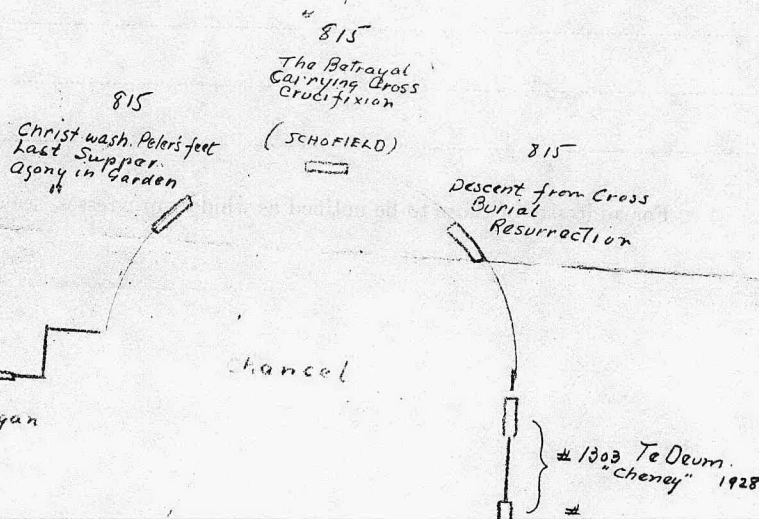 815
The Betrayal
Carrying Cross
Crucifixion
(SCHOFIELD)
815
Christ wash. Peter's feet
Last Supper.
Agony in Garden
"
815
Descent from Cross
Burial
Resurrection
Chancel
gan
# 1303 Te Deum.
"Cheney" 1928
#